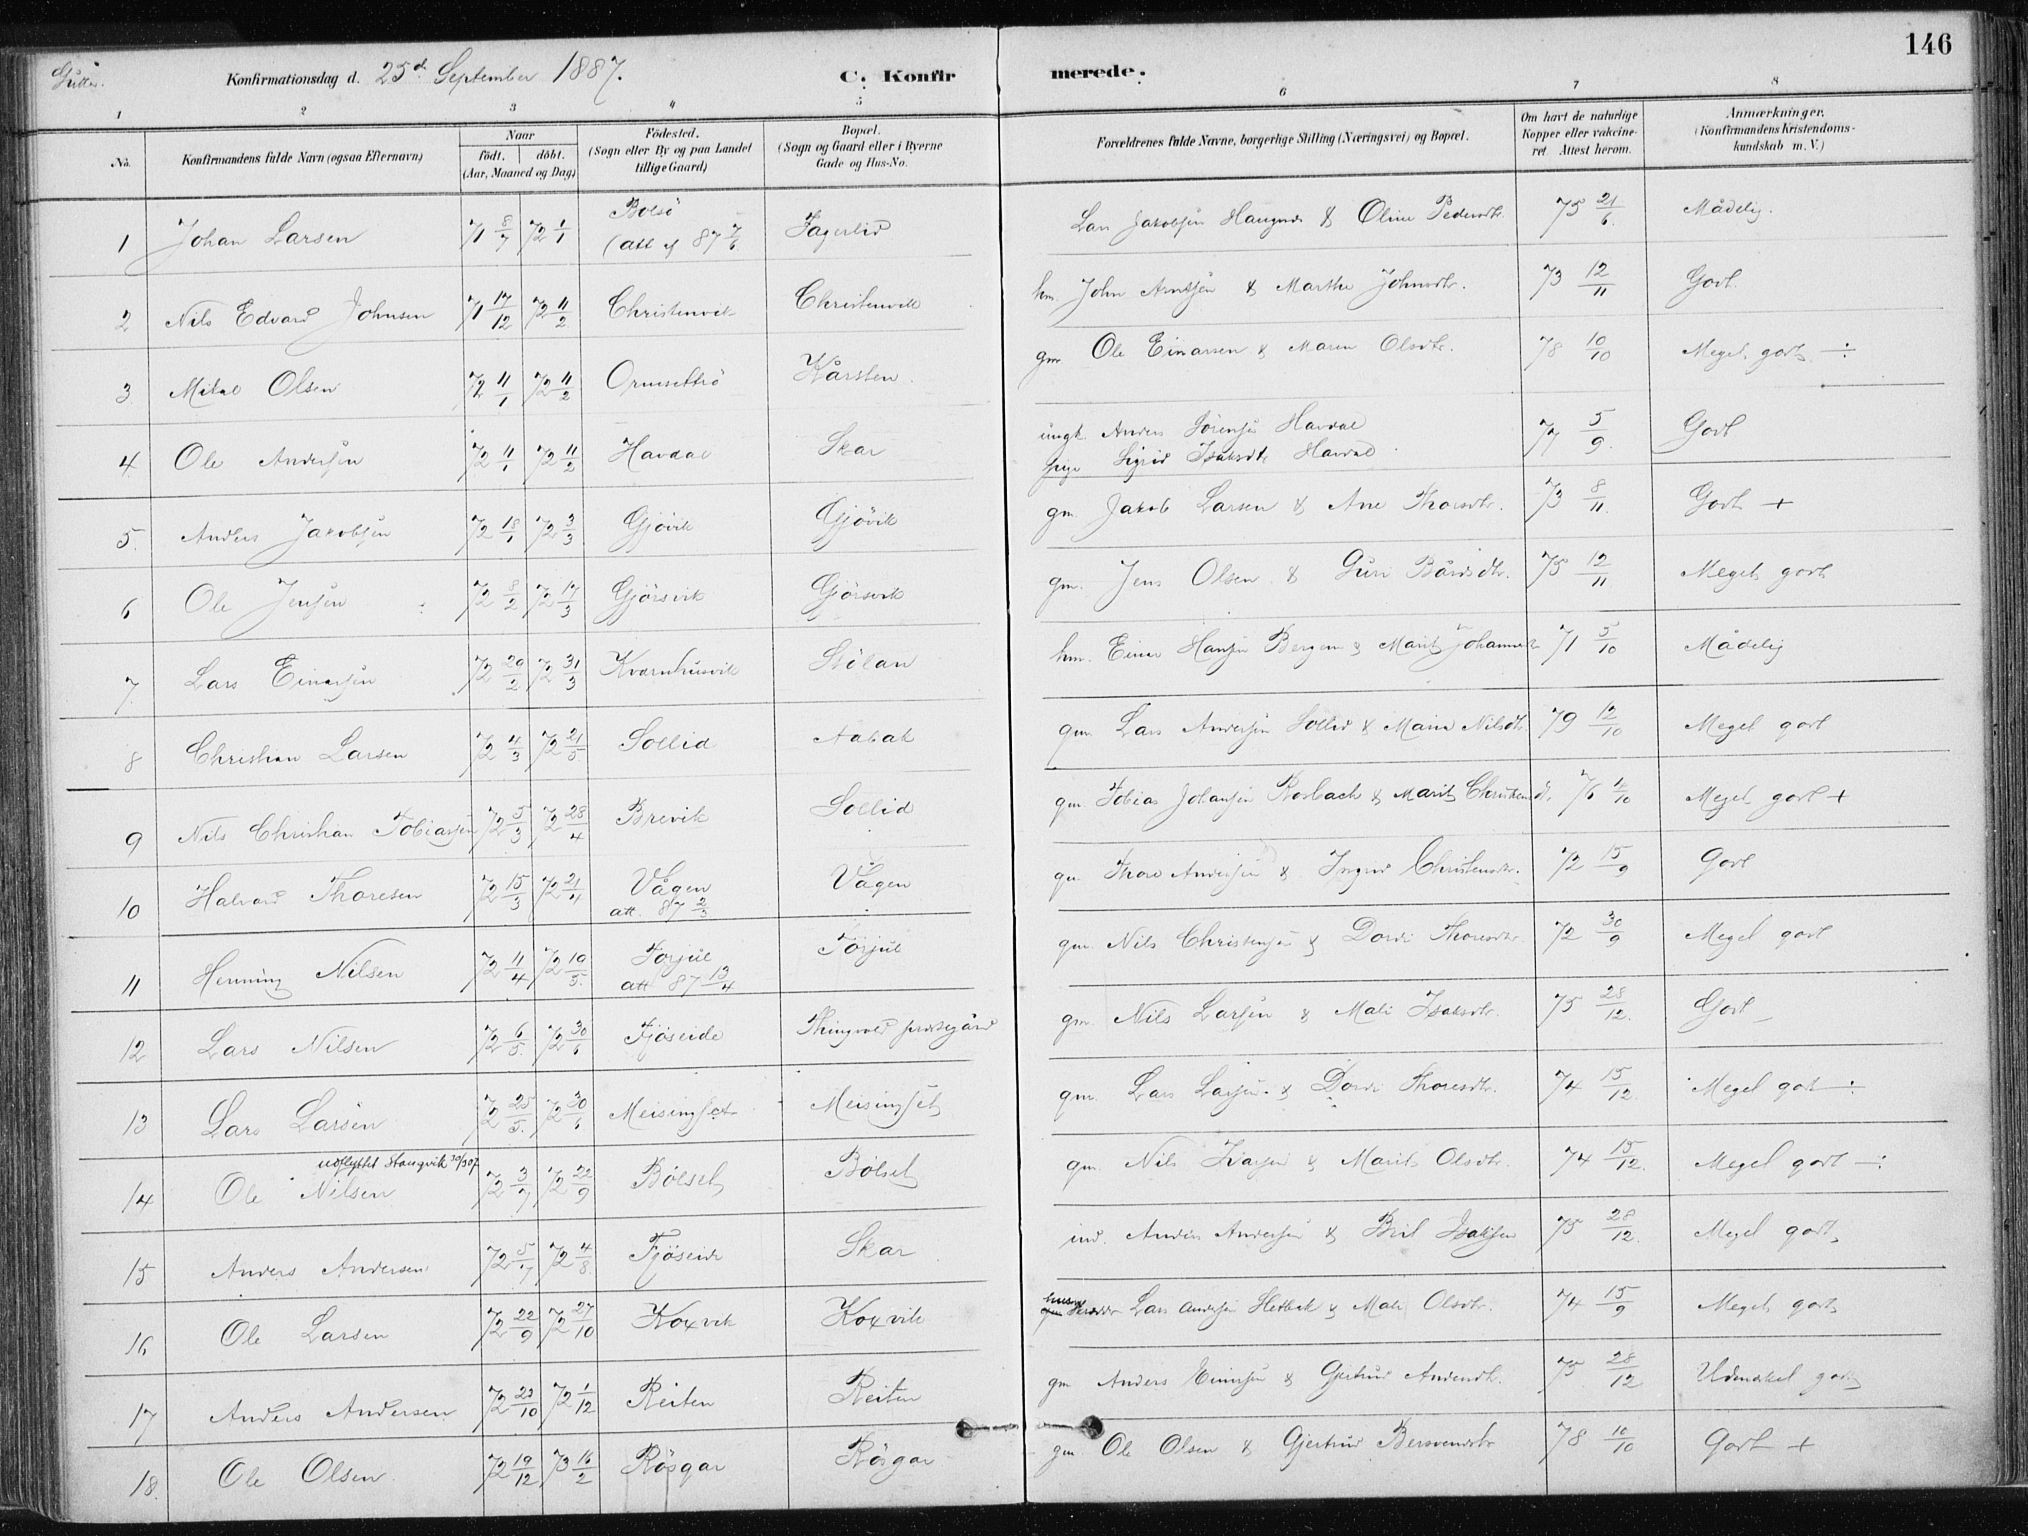 146
Gutter.
Konfirmationsdag d. 25de September 1887.
C. Konfirmerede.
1 2 3 4 5 6 7 8
No. Konfirmandens fulde Navn (ogsaa Efternavn)
Naar født. døbt. (Aar, Maaned og Dag)
Fødested. (Sogn eller By og paa Landet tillige Gaard)
Bopæl. (Sogn og Gaard eller i Byerne Gade og Hus-No.
Forældrenes fulde Navne, borgerlige Stilling (Næringsvei) og Bopæl.
Om havt de naturlige Kopper eller vakcineret. Attest herom.
Anmærkninger. (Konfirmandens Kristendomskundskab m. V.)
1 Johan Larsen 71 8/7 72 1/1 Bolsö (att af 87 7/6 Fagerlid Lars Jakobsen & Oline Pedersdtr 75 21/6 Mådelig.
2 Nils Edvard Johnsen 71 17/12 72 11/2 Christenvik Christenvik hm. John Arntsen & Marthe Johnsdtr. 73 12/11 Godt.
3 Mikal Olsen 72 11/1 72 11/2 Ormsettrö Kårsten gm Ole Einarsen & Maren Olsdtr. 78 10/10 Meget godt ÷
4 Ole Andersen 72 11/1 72 11/2 Havdal Skar ungk. Anders Sörensen Havdal
pige Sigrid Isaksdtr Havdal 77 5/9 Godt
5. Anders Jakobsen 72 18/1 72 3/3 Gjövik Gjövik gm. Jakob Larsen & Ane Thorsdtr. 73 8/11. Godt +
6 Ole Jensen 72 8/2 72 17/3 Gjörsvik Gjörsvik gm. Jens Olsen & Guri Bårdsdtr. 75 12/11 Meget godt
7. Lars Einarsen 72 29/2 72 31/3 Kvarnhusvik Stölan hm. Einar Hansen Bergem & Marit Johannesdtr 71 5/10 Mådelig
8 Christian Larsen 72 4/3 72 21/5 Sollid Aabak gm. Lars Andersen Sollid & Marie Nilsdtr 79 12/10 Meget godt
9 Nils Christian Tobiassen 72 5/3 72 28/4 Brevik Sollid gm. Tobias Johansen Rosbach & Marit Christensd. 76 1/10 Meget godt +
10 Halvard Thoresen 72 15/3 72 21/4 Vågen att. 87 2/3 Vågen gm Thore Andersen & Ingrid Christensdtr. 72 15/9 Godt
11 Henning Nilsen 72 11/4 72 19/5. Torjul att 87 13/4 Torjul gm. Nils Christensen & Dordi Thoresdtr. 72 30/9 Meget godt
12 Lars Nilsen 72 6/5. 72 30/6 Fjöseide Thingvold prestegård gm. Nils Larsen & Mali Isaksdtr. 75 28/12. Godt
13 Lars Larsen 72 25/5. 72 30/6 Meisingset Meisingset gm. Lars Larsen & Dordi Thoresdtr. 74 15/12. Meget godt ÷
udflyttet Stangvik 30/3 07
14 Ole Nilsen 72 3/7 72 22/9 Bölset Bölset gm. Nils Ivarsen & Marit Olsdtr. 74 15/12. Meget godt ÷
15 Anders Andersen 72 5/7 72 4/8. Fjöseide Skar ind. Anders Andersen & Brit Isaksen 75 28/12. Meget godt
16 Ole Larsen 72 22/9 72 27/10 Koxvik Koxvik husm Lars Andersen & Mali Olsdtr. 74 15/9 Meget godt
17 Anders Andersen 72 22/10 72 1/12 Reiten Reiten gm Anders Einersen & Gjertrud Andersdtr. 75 28/12 Udmerket godt
18. Ole Olsen 72 19/12 73 16/2 Rösgar Rösgar gm Ole Olsen & Gjertrud Bersvendsdtr 78 10/10 Godt +